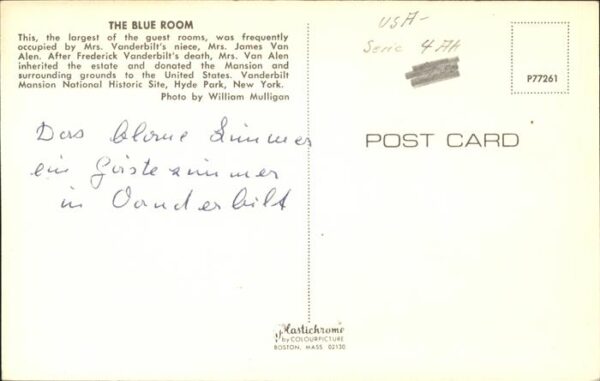 THE BLUE ROOM
This, the largest of the guest rooms, was frequently
occupied by Mrs. Vanderbilt's niece, Mrs. James Van
Alen. After Frederick Vanderbilt's death, Mrs. Van Alen
inherited the estate and donated the Mansion and
surrounding grounds to the United States. Vanderbilt
Mansion National Historic Site, Hyde Park, New York.
Photo by William Mulligan
USA-
Serie 4 AH
P77261
POST CARD
Das blaue Zimmer
ein Gästezimmer
in Vanderbilt
Plastichrome
by COLOURPICTURE
BOSTON, MASS 02130